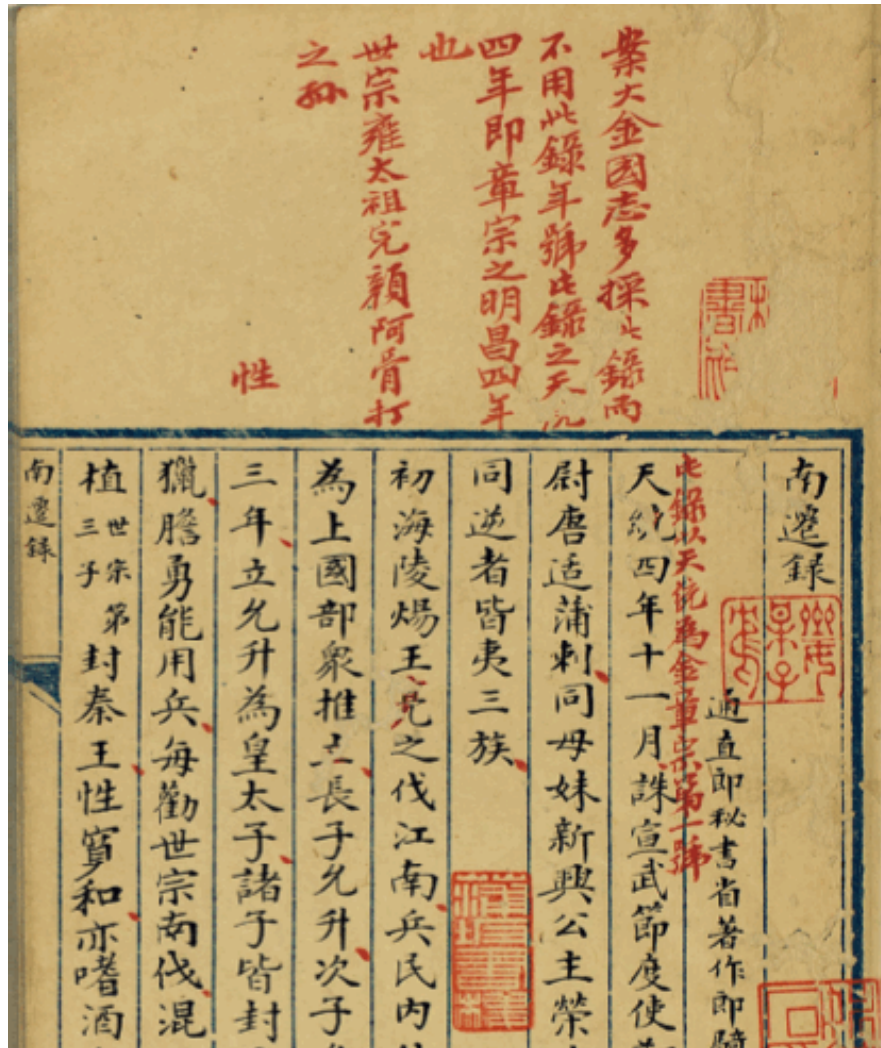 案大金國志多採此錄而
不用此錄年號此錄之天統
四年即章宗之明昌四年
也
世宗雍太祖完顏阿骨打
之孫
性
南遷錄
通直郎秘書省著作郎
此錄以天統為金章宗第一號
天統四年十一月誅宣武節度使
尉唐适蒲刺同母妹新興公主榮
同逆者皆夷三族
初海陵煬王亮之伐江南兵民内
為上國部衆推立長子允升次子
三年立允升為皇太子諸子皆封
獵膽勇能用兵每勸世宗南伐混
植世宗第三子封秦王性寬和亦嗜酒
南遷錄